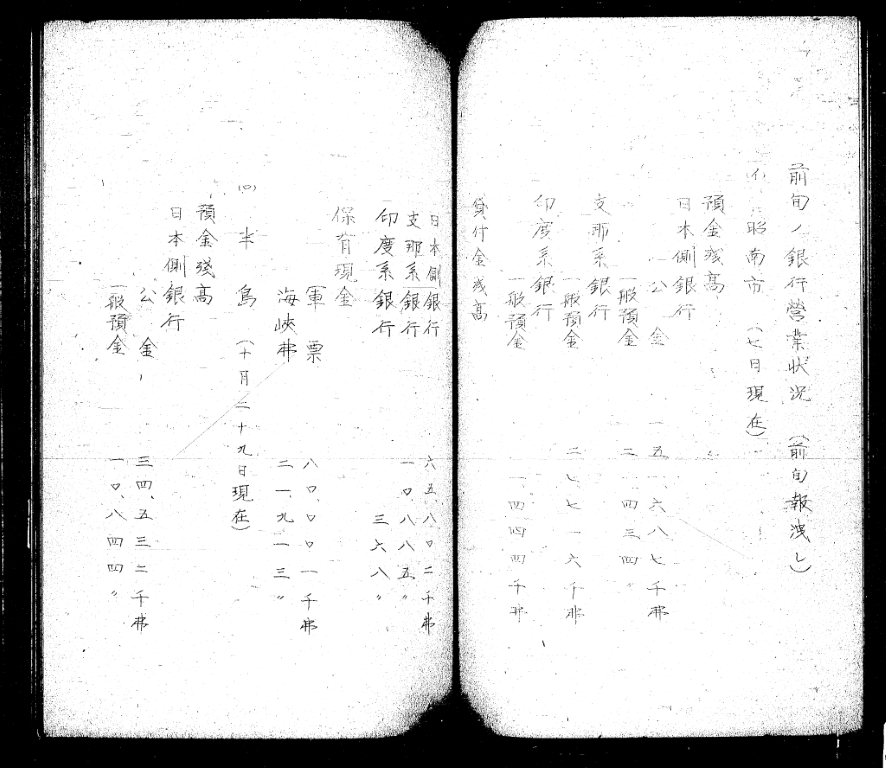 前旬ノ銀行營業状況 (前旬報洩レ)
(イ) 昭南市 (七日現在)
預金残高
日本側銀行
公金 一五一、六八七千弗
一般預金 二一、四三四〃
支那系銀行
一般預金 二七、七一六千弗
印度系銀行
一般預金 一、四四四千弗
貸付金残高
日本側銀行 六五、八〇二千弗
支那系銀行 一〇、八八五〃
印度系銀行 三六八〃
保有現金
軍票 八〇、〇〇一千弗
海峡弗 二一、九一三〃
(ロ) 半島 (十月二十九日現在)
預金残高
日本側銀行
公金 三四、五三二千弗
一般預金 一〇、八四四〃